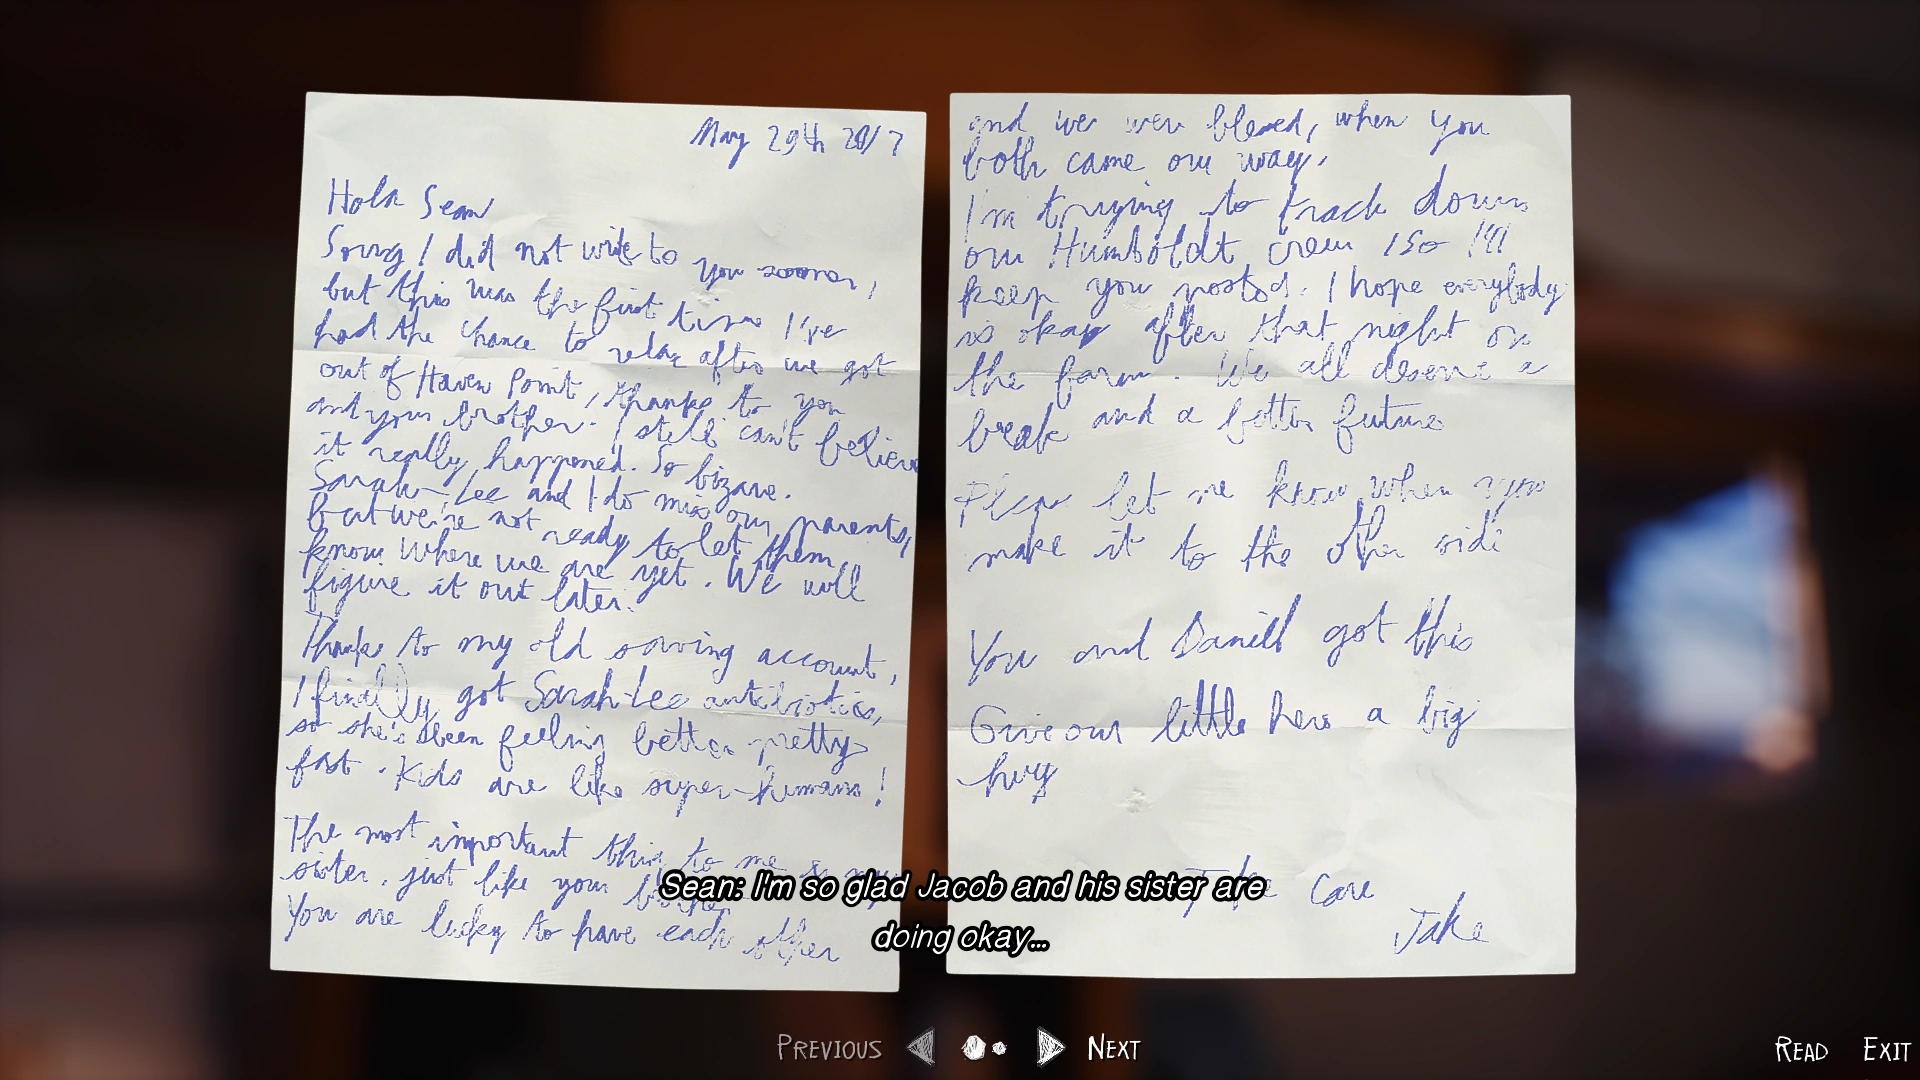 May 29th 2017
Hola Sean
Sorry I did not write to you sooner,
but this was the first time I've
had the chance to relax after we got
out of Haven Point, thanks to you
and your brother. I still can't believe
it really happened. So bizare.
Sarah-Lee and I do miss our parents,
but we're not ready to let them
know where we are yet. We will
figure it out later.
Thanks to my old saving account,
I finally got Sarah-Lee antibiotics,
so she's been feeling better pretty
fast. Kids are like super-humans!
The most important thing to me is my
sister, just like your brother
You are lucky to have each other
and we were blessed, when you
both came our way.
I'm trying to track down
our Humboldt crew, so I'll
keep you posted. I hope everybody
is okay after that night on
the farm. We all deserve a
break and a better future
Please let me know when you
make it to the other side
You and Daniel got this
Give our little hero a big
hug
Take Care
Jake
Sean: I'm so glad Jacob and his sister are
doing okay...
PREVIOUS NEXT
READ EXIT